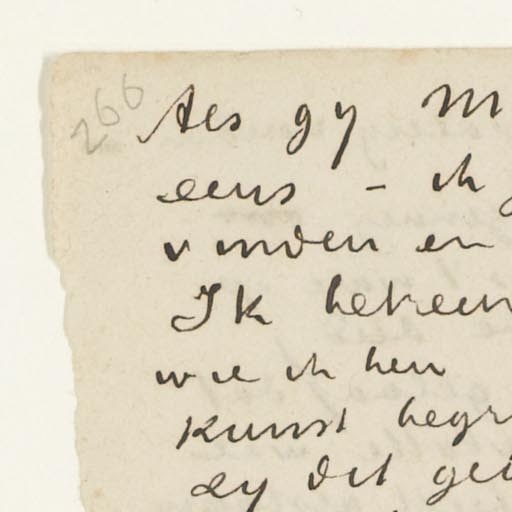 266
Als gy M
eens - ik g
vinden en
Ik beken
wie ik ben
Kunst begr
zy dit gei